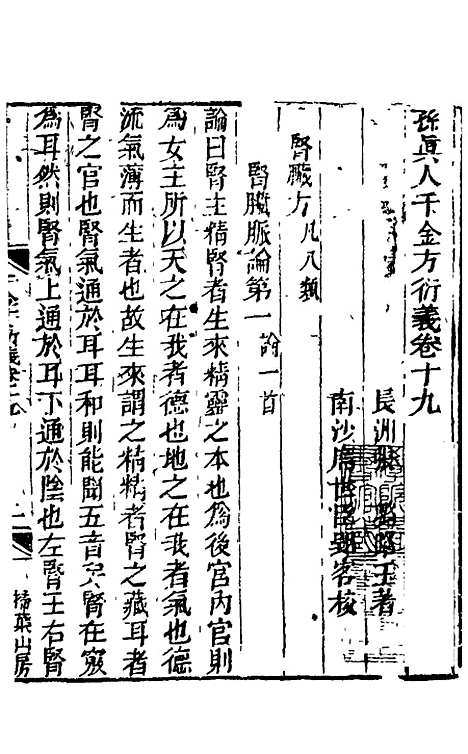 孫眞人千金方衍義卷十九
長洲張璐路玉著
南沙席世臣郢客校
腎臟方凡八類
腎臟脈論第一 論一首
論曰腎主精腎者生來精靈之本也爲後宮內官則
爲女主所以天之在我者德也地之在我者氣也德
流氣薄而生者也故生來謂之精精者腎之藏耳者
腎之官也腎氣通於耳耳和則能聞五音矣腎在竅
爲耳然則腎氣上通於耳下通於陰也左腎王右腎
掃葉山房